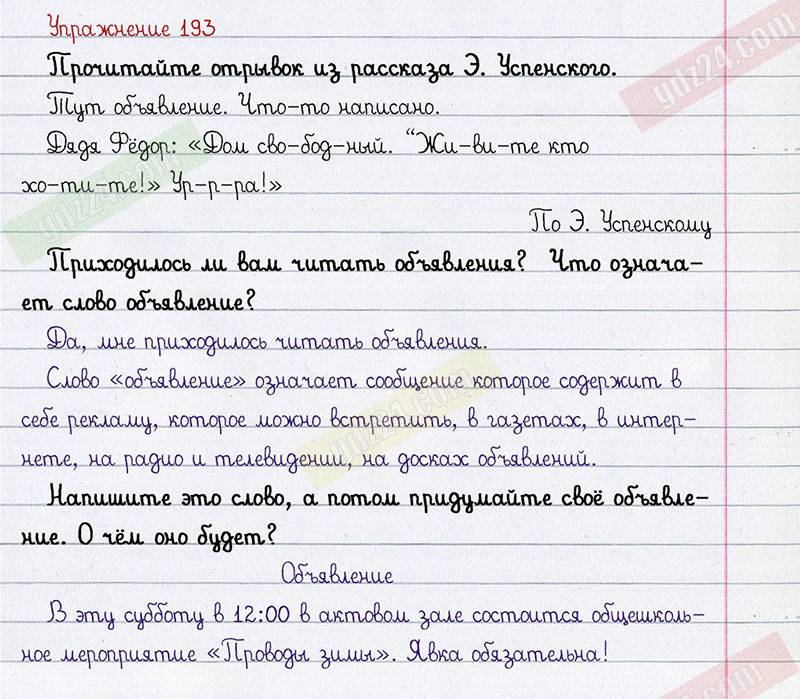 Упражнение 193
Прочитайте отрывок из рассказа Э. Успенского.
Тут объявление. Что-то написано.
Дядя Фёдор: «Дом сво-бод-ный. “Жи-ви-те кто
хо-ти-те!» Ур-р-ра!»
По Э. Успенскому
Приходилось ли вам читать объявления? Что означа-
ет слово объявление?
Да, мне приходилось читать объявления.
Слово «объявление» означает сообщение которое содержит в
себе рекламу, которое можно встретить, в газетах, в интер-
нете, на радио и телевидении, на досках объявлений.
Напишите это слово, а потом придумайте своё объявле-
ние. О чём оно будет?
Объявление
В эту субботу в 12:00 в актовом зале состоится общешколь-
ное мероприятие «Проводы зимы». Явка обязательна!
gdz24.com
gdz24.com
gdz24.com
gdz24.com